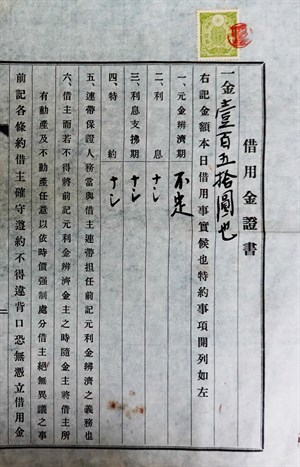 借用金證書
一金壹百五拾圓也
右記金額本日借用事實候也特約事項開列如左
一、元金辨濟期 不定
二、利息 ナシ
三、利息支拂期 ナシ
四、特約 ナシ
五、連帶保證人務當與借主連帶担任前記元利金辨濟之義務也
六、借主而若不得將前記元利金辨濟金主之時隨金主將借主所
有動產及不動產任意以依時價强制處分借主絕無異議之事
前記各條約借主確守遵約不得違背口恐無憑立借用金